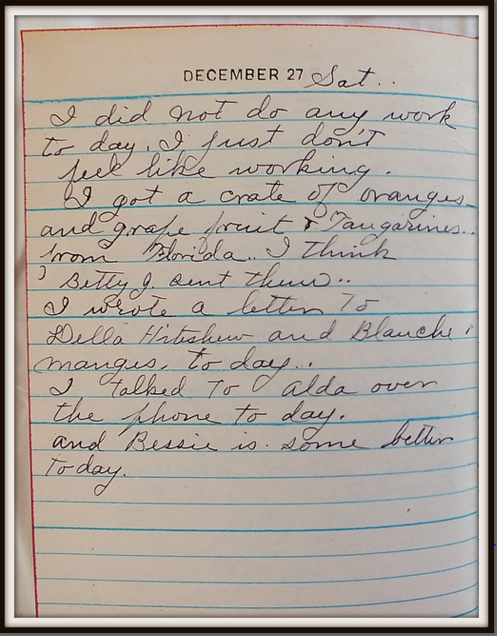 DECEMBER 27 Sat..
I did not do any work
to day. I just don't
feel like working.
I got a crate of oranges
and grape fruit & Tangarines..
from Florida.. I think
Betty J. sent them..
I wrote a letter To
Della Hiteshew and Blanche
manges. to day..
I talked To Alda over
the phone to day.
and Bessie is some better
today.